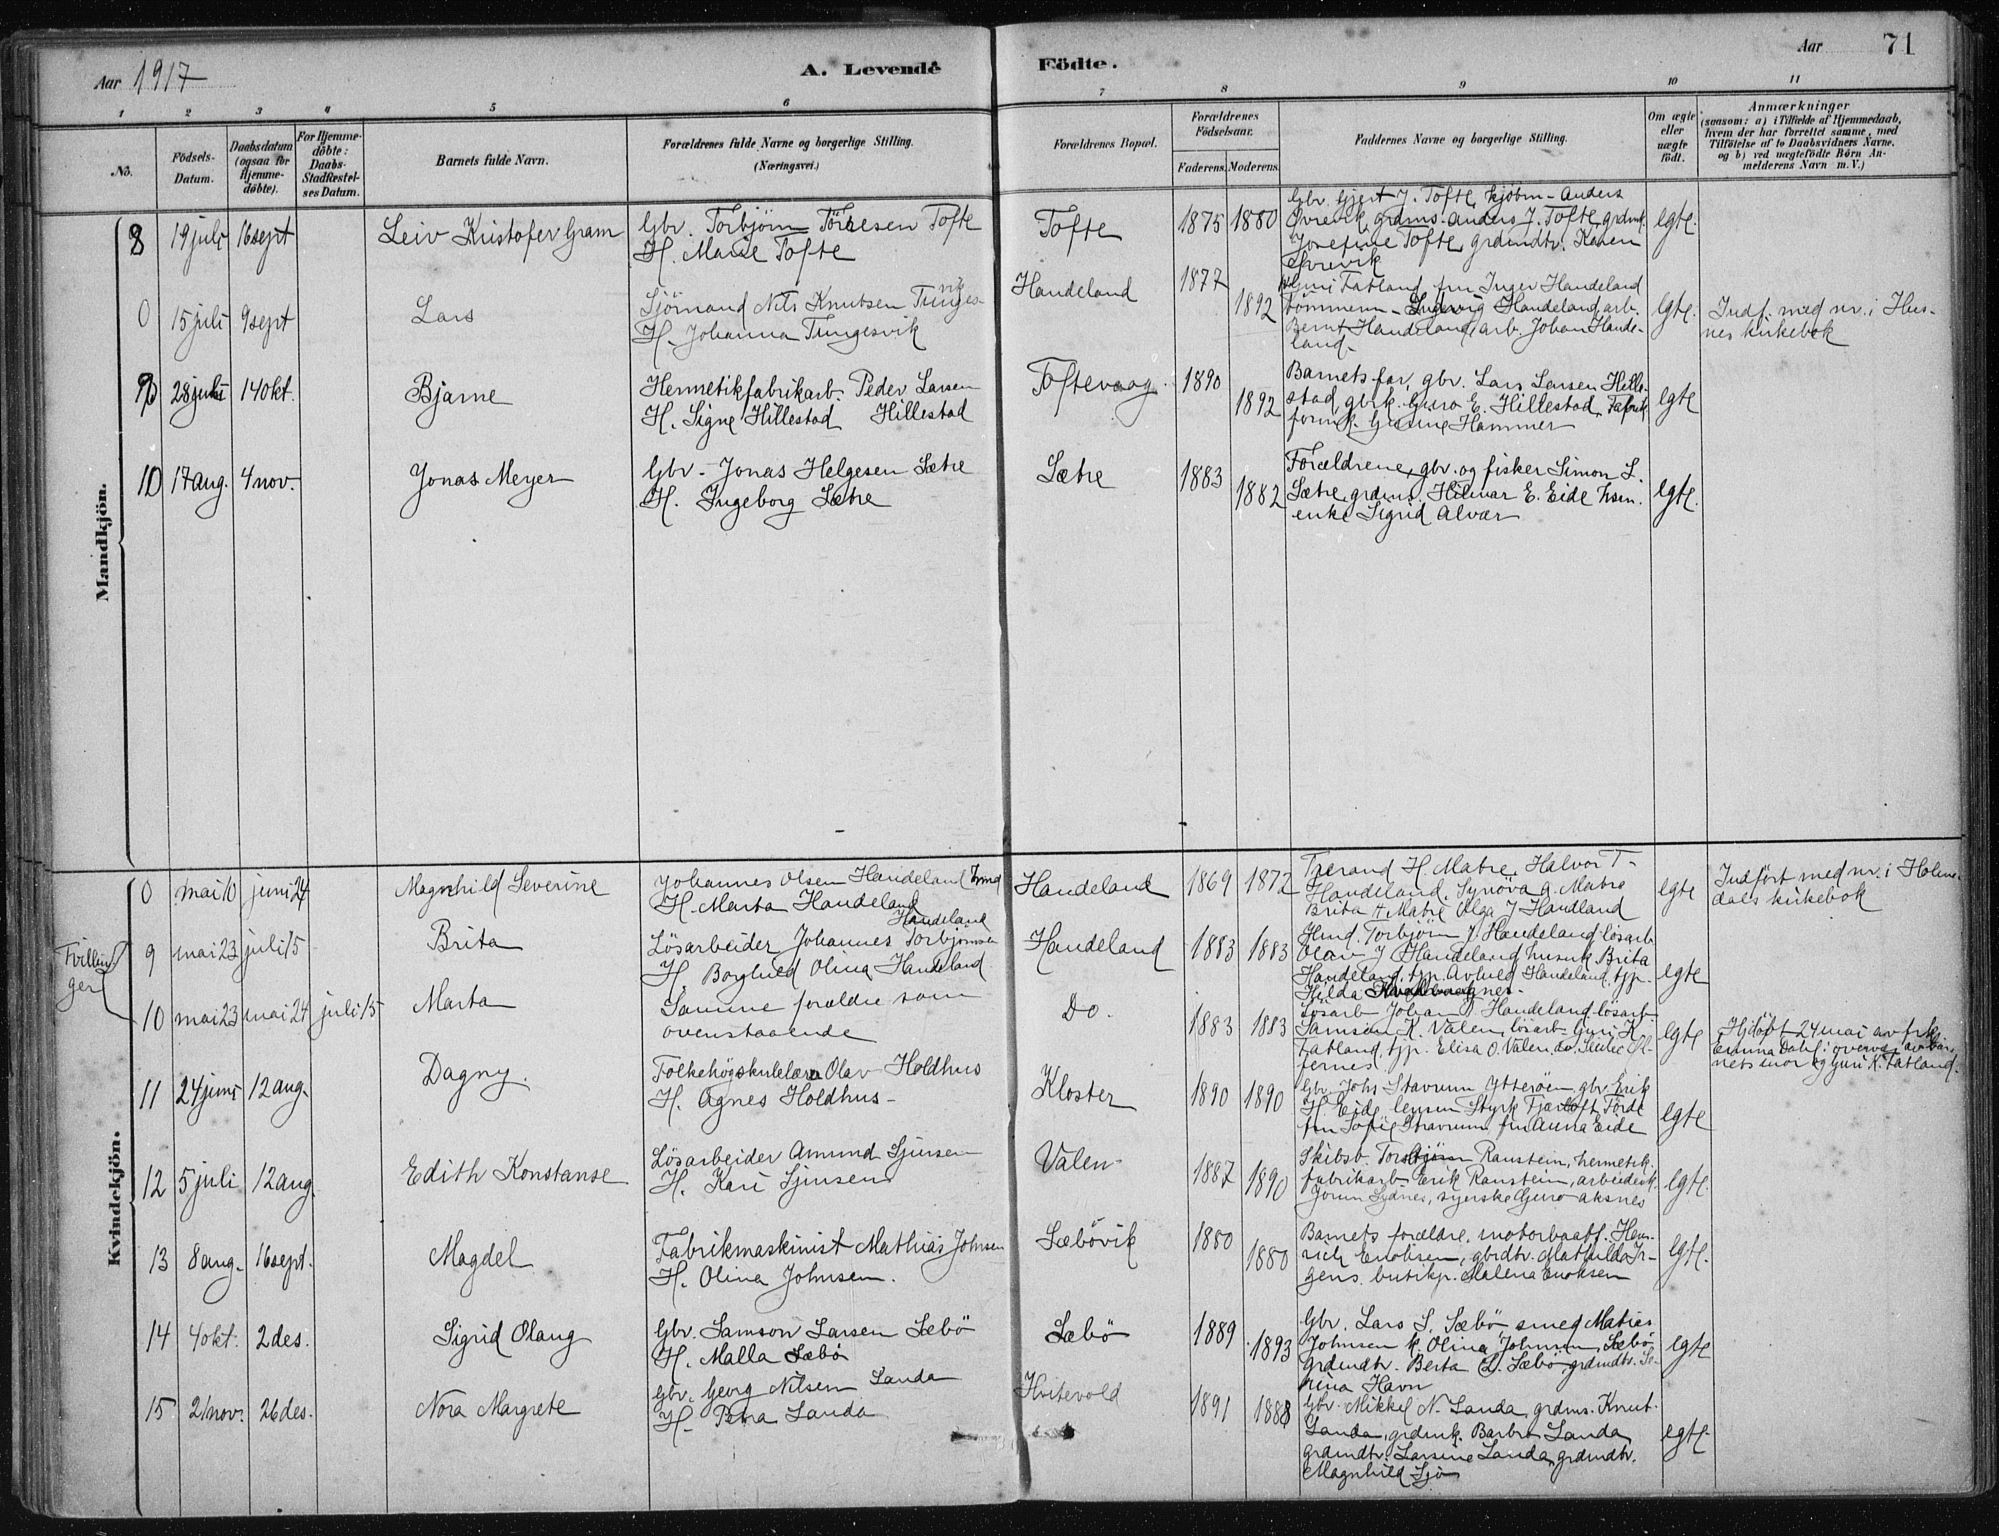 Aar 1917
A. Levende
Födte.
Aar 71
1 2 3 4 5 6 7 8 9 10 11
No.
Födsels-
Datum.
Daabsdatum
(ogsaa for
Hjemme-
döbte).
For Hjemme-
döbte:
Daabs-
Stadfæstel-
ses Datum.
Barnets fulde Navn.
Forældrenes fulde Navne og borgerlige Stilling.
(Næringsvei.)
Forældrenes Bopæl.
Forældrenes
Födselsaar.
Faderens. Moderens.
Faddernes Navne og borgerlige Stilling.
Om ægte
eller
uægte
födt.
Anmærkninger
(saasom: a) i Tilfælde af Hjemmedaab,
hvem der har forrettet samme, med
Tilföielse af to Daabsvidners Navne,
og b) ved uægtefödte Börn An-
melderens Navn m. V.)
Mandkjön.
8 19 juli 16 sept Leiv Kristofer Gram
Gbr. Torbjörn Törresen Tofte
H. Marie Tofte
Tofte 1875 1880
Gbr. Gjert J. Tofte, kjöbm. Anders
Övrevik, grdms. Anders J. Tofte, grdmk.
Josefine Tofte, grdmdtr. Karen
Övrevik
egte.
0 15 juli 9 sept Lars
Sjömand Nils Knutsen Tunges-
vik
H. Johanna Tungesvik
Handeland 1877 1892
Guri Fatland, fru Inger Handeland
Tömmerm. Ingevig Handeland, arb.
Bernt Handeland, arb. Johan Hande-
land.
egte.
Indf. med nr. i Hus-
nes kirkebok
9 28 juli 14 okt. Bjarne
Hermetikfabrikarb. Peder Larsen
Hillestad
H. Signe Hillestad
Toftevaag. 1890 1892
Barnets far, gbr. Lars Larsen Hille-
stad, gbrk. Guro E. Hillestad, Fabrik
formk. Gurine Hammer
egte
10 17 aug. 4 nov. Jonas Meyer
Gbr. Jonas Helgesen Sætre
H. Ingeborg Sætre
Sætre 1883 1882
Forældrene, gbr. og fisker Simon S.
Sætre, grdms. Hilmar E. Eide, husm.
enke Sigrid Alvær
egte.
Kvindekjön.
0 mai 10 juni 24 Magnhild Severine
Johannes Olsen Handeland
H. Marta Handeland
Handeland 1869 1872
Tjerand H. Matre, Halvor T.
Handeland, Synöva A. Matre
Brita H Matre Olga J Handland
egte
Indfört med nr. i Holme-
dals kirkebok
Tvillin-
ger
9 mai 23 juli 15 Brita
Handeland
Lösarbeider Johannes Torbjörnsen
H. Borghild Olina Handeland
Handeland 1883 1883
Hmd. Torbjörn J. Handeland lösarb.
Olav J Handeland, husmk. Brita
Handeland, tjp. Avhild Handeland, tjp.
Hilda
egte
10 mai 23 mai 24 juli 15 Marta
Samme forældre som
ovenstaaende
Do. 1883 1883
Lösarb Johan D. Handeland lösarb.
Samson K. Valen, lösarb. Guri K.
Fatland, tjp. Elisa O. Valen,
fernes
egte
Hjdöpt 24 mai av frk
Emma Dahl i overvær av bar-
nets mor og Guri K. Fatland.
11 24 juni 12 aug. Dagny.
Folkehögskulelærer Olav Holdhus
H. Agnes Holdhus
Kloster 1890 1890
Gbr. Johs Stavrum Ytteröen, gbr. Erik
H. Eide, lensm Styrk Fjærtoft, Förde
fru Sofie Stavrum, fru Anna Eide
egte
12 5 juli 12 aug. Edith Konstanse
Lösarbeider Amund Sjursen
H. Kari Sjursen
Valen 1887 1890
Skibsb. Torbjörn Ranstein, hermetik
fabrikarb Erik Ranstein, arbeidersk
Jorun Sydnes, syerske Guro Aksnes
egte.
13 8 aug. 16 sept. Magdel
Fabrikmaskinist Mathias Johnsen
H. Olina Johnsen.
Sæbövik 1880 1880
Barnets forældre, motorbaatf. Hen-
rich Enoksen, gbrdtr. Mathilda Jr-
gens, butikp. Malena Enoksen
egte.
14 4 okt. 2 des. Sigrid Olaug
Gbr. Samson Larsen Sæbö
H. Malla Sæbö
Sæbö 1889 1893
Gbr. Lars S. Sæbö, smed Matias
Johnsen, k. Olina Johnsen, Sæbö,
grdmdtr. Berta L. Sæbö grdmdtr. Se-
rina Havn
egte
15 21 nov. 26 des. Nora Margrete
Gbr. Georg Nilsen Sanda
H. Petra Sanda
Hvitevold 1891 1888
Gbr. Mikkel N. Sanda, grdms. Knut
Sanda, grdmk. Barbro Sanda,
grdmdtr. Larsine Sanda, grdmdtr.
Magnhild Sjo
egte.